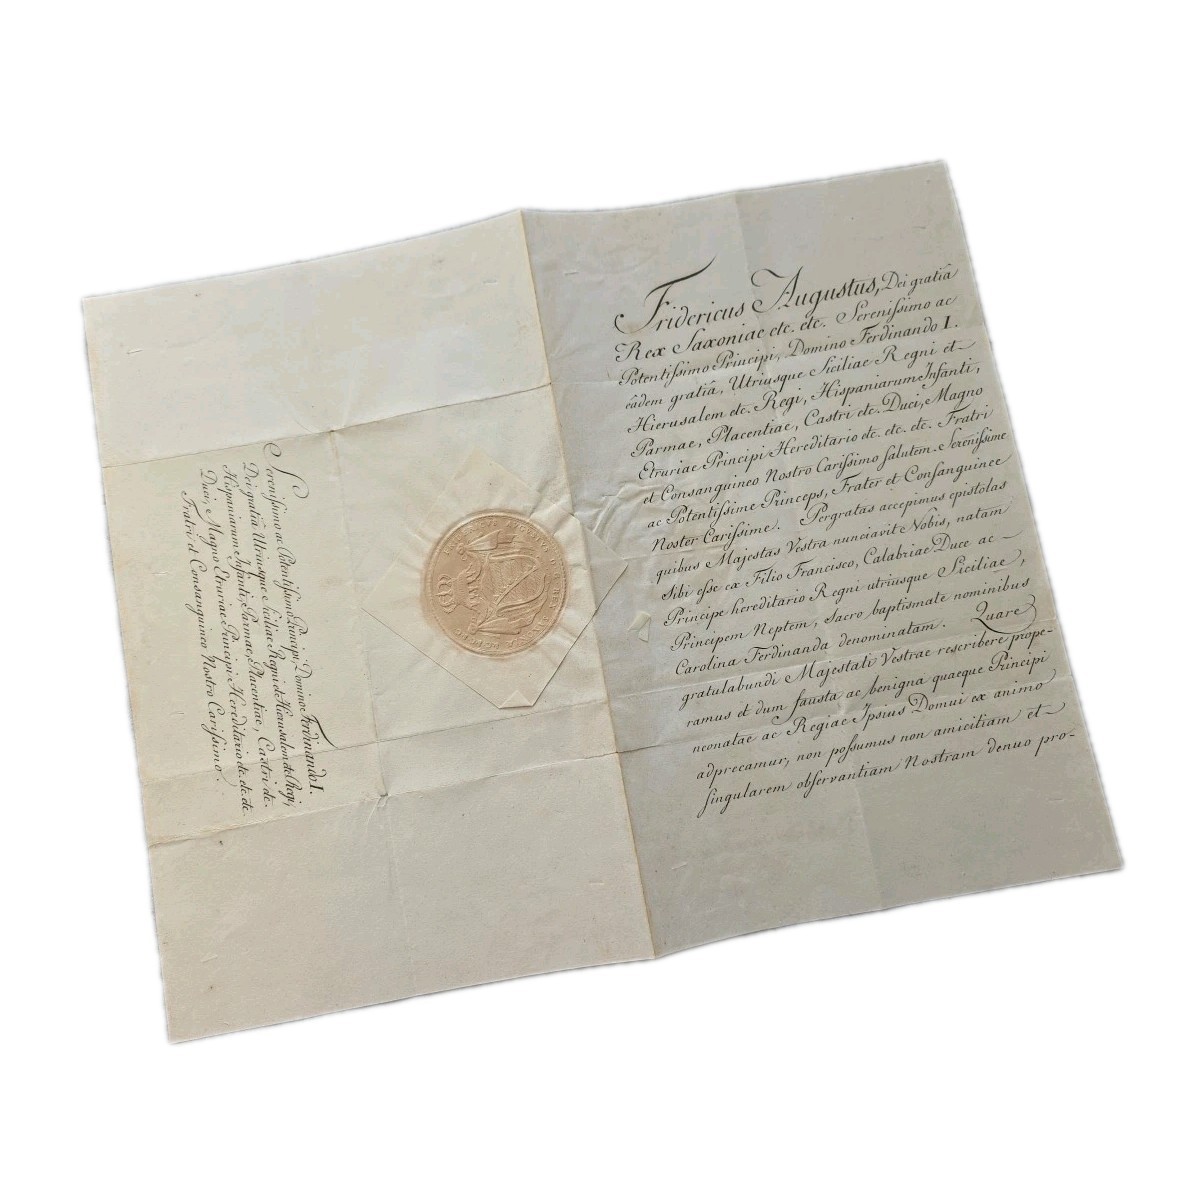 Fridericus Augustus, Dei gratiâ
Rex Saxoniae etc. etc. Serenißimo ac
Potentißimo Principi, Domino Ferdinando I.
eâdem gratiâ, Utriusque Siciliae Regni et
Hierusalem etc. Regi, Hispaniarum Infanti,
Parmae, Placentiae, Castri etc. Duci, Magno
Etruriae Principi Hereditario etc. etc. etc. Fratri
et Consanguineo Nostro Carißimo salutem. Serenißime
ac Potentißime Princeps, Frater et Consanguinee
Noster Carißime. Pergratas accepimus epistolas
quibus Majestas Vestra nunciavit Nobis, natam
Sibi eße ex Filio Francisco, Calabriae Duce ac
Principe hereditario Regni utriusque Siciliae,
Principem Neptem, sacro baptismate nominibus
Carolina Ferdinanda denominatam. Quare
gratulabundi Majestati Vestrae rescribere prope-
ramus et dum fausta ac benigna quaeque Principi
neonatae ac Regiae Ipsius Domui ex animo
adprecamur, non poßumus non amicitiam et
singularem observantiam Nostram denuo pro-
Serenißimo ac Potentißimo Principi, Domino Ferdinando I.
Dei gratiâ Utriusque Siciliae Regni et Hierusalem etc. Regi,
Hispaniarum Infanti, Parmae, Placentiae, Castri etc.
Duci, Magno Etruriae Principi Hereditario etc. etc. etc.
Fratri et Consanguineo Nostro Carißimo.